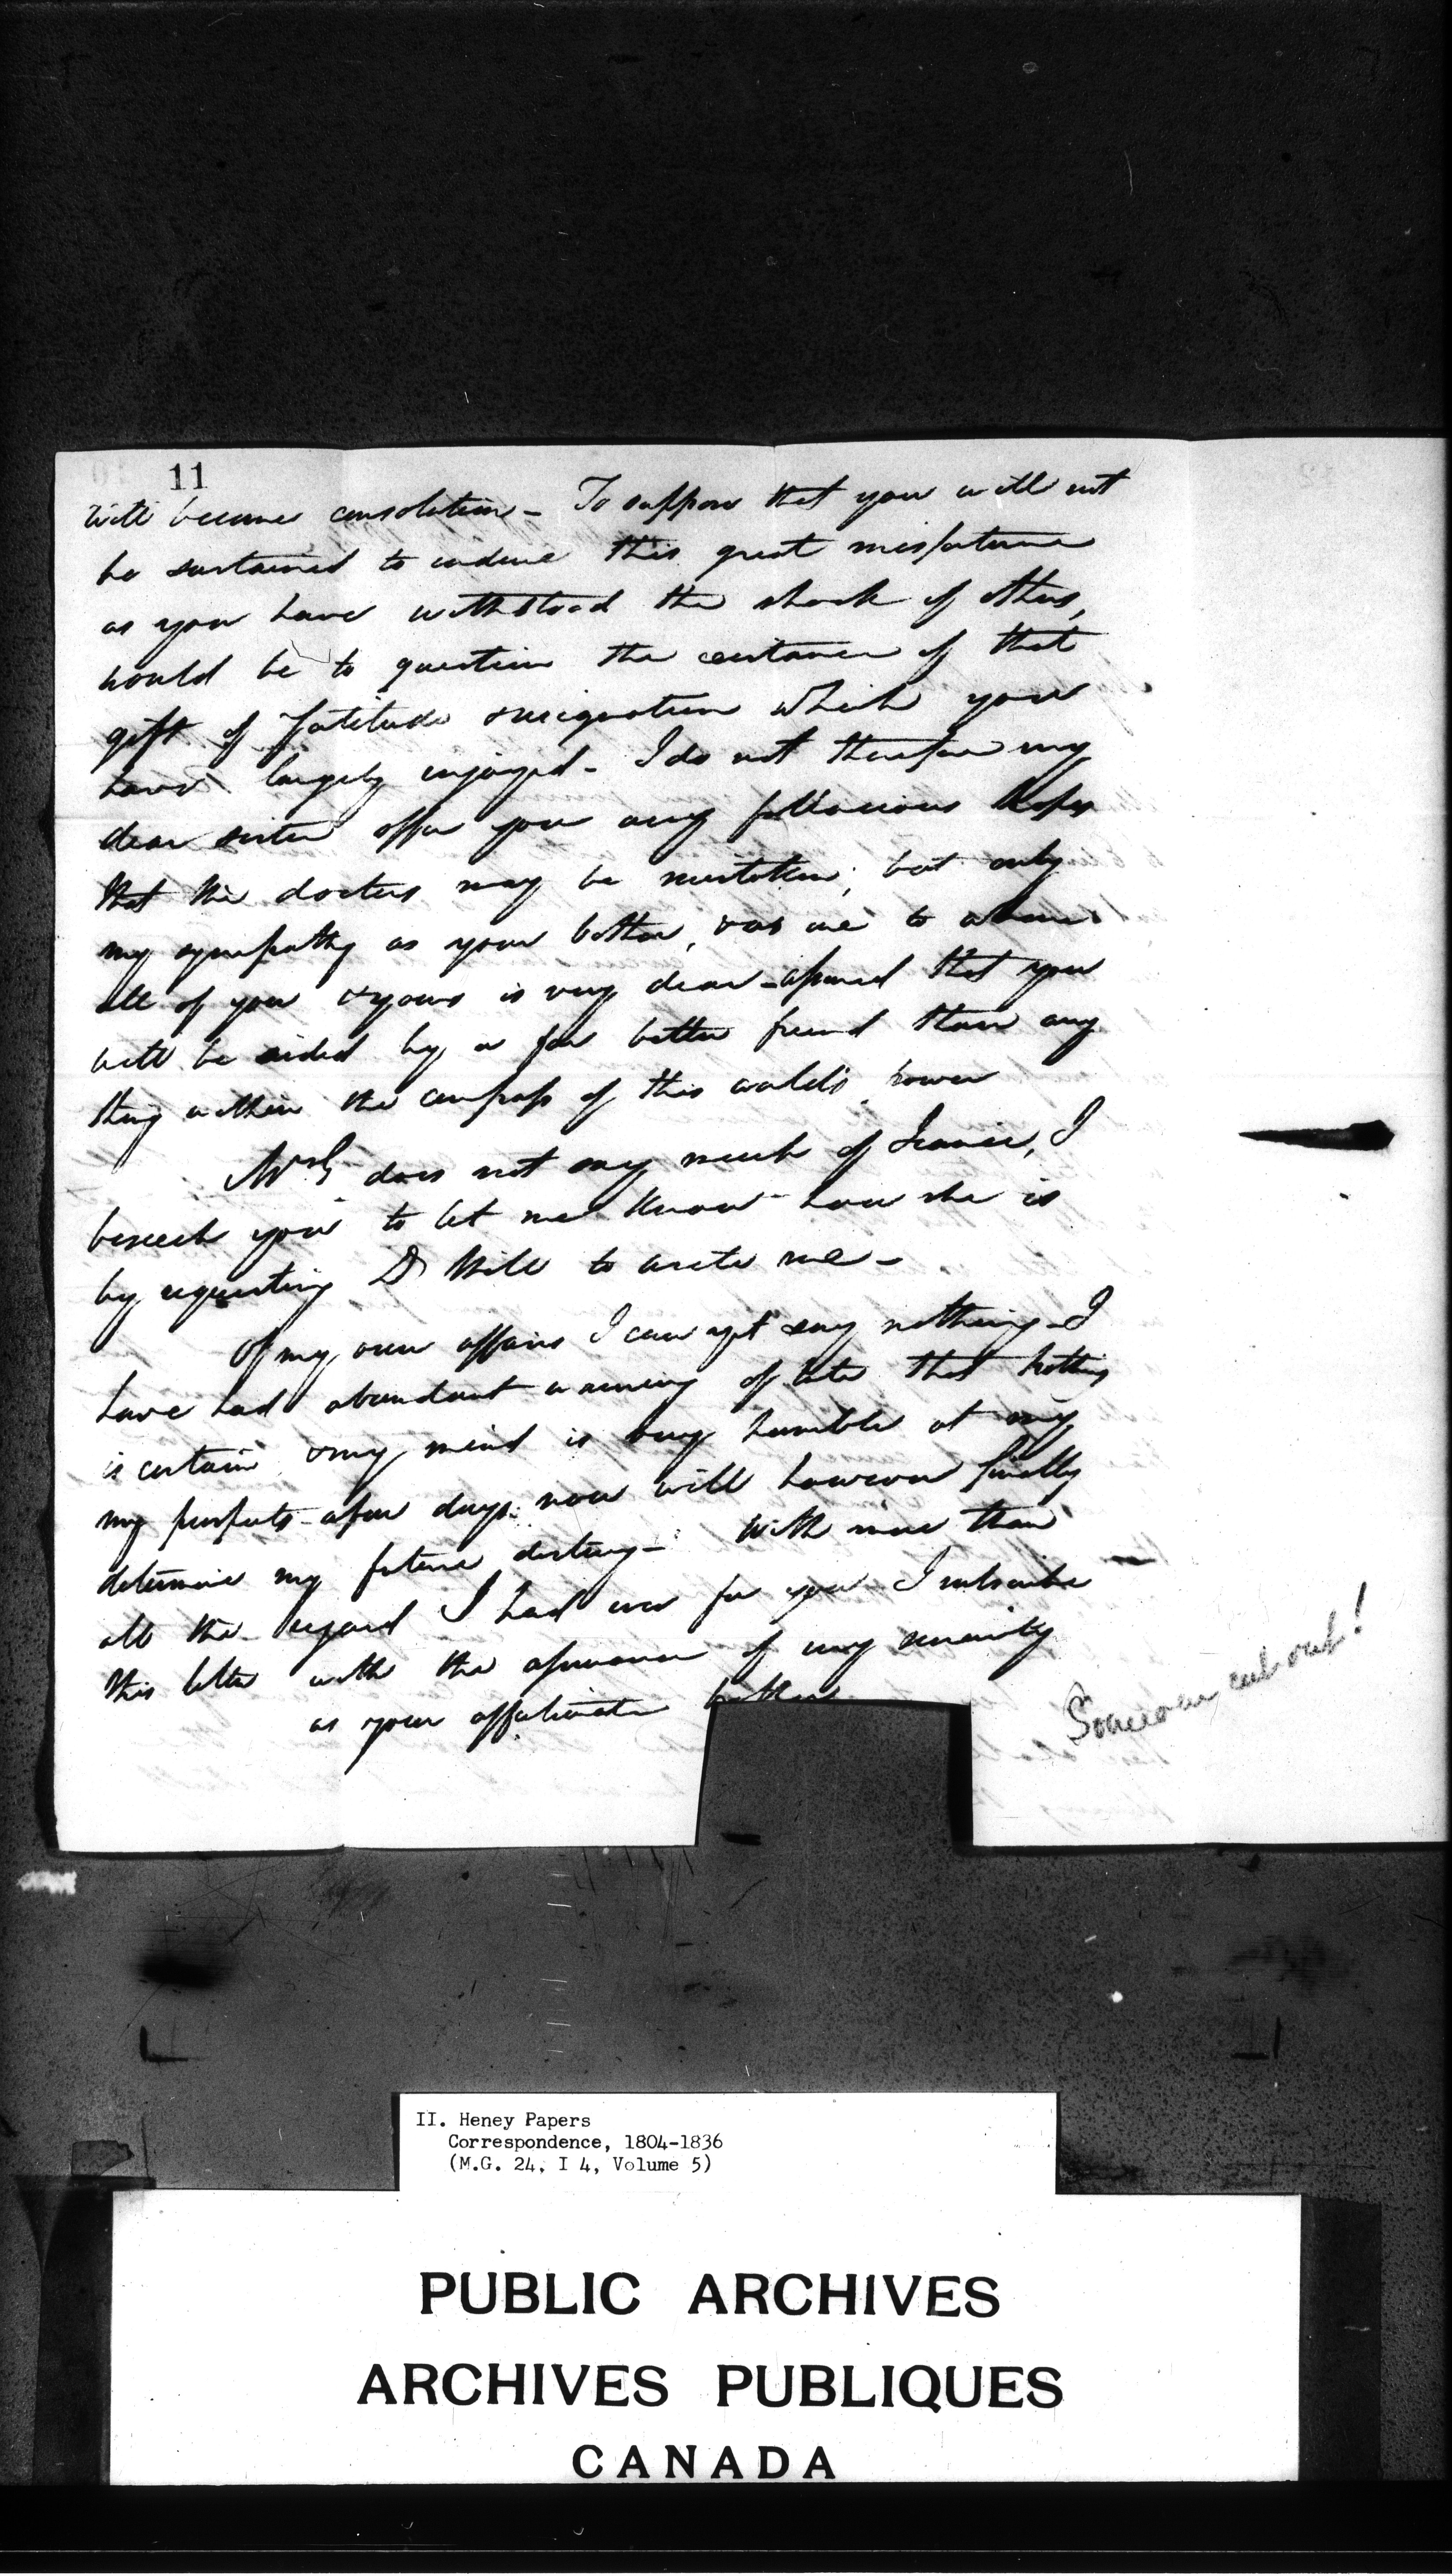 11
will become consolation - To suppose that you will not
be sustained to endure this great misfortune
as you have withstood the shock of others,
would be to question the existence of that
gift of fortitude & resignation which you
have largely enjoyed - I do not therefore my
dear sister offer you any fallacious hopes
that the doctors may be mistaken; but only
my sympathy as your brother, & as one to whom
all of you & yours is very dear - assured that you
will be aided by a far better friend than any
thing within the compass of this world's power
does not say much of Jeanie, I
beseech you to let me know how she is
by requesting D to write me -
Of my own affairs I can yet say nothing - I
have had abundant warning of late that nothing
is certain & my mind is very humble at
my prospects - a few days now will however finally
determine my future destiny - With more than
all the regard I had ever for you I subscribe
this letter with the assurance of my sincerity
as your affectionate brother
Someone cut out!
II. Heney Papers
Correspondence, 1804-1836
(M.G. 24, I 4, Volume 5)
PUBLIC ARCHIVES
ARCHIVES PUBLIQUES
CANADA